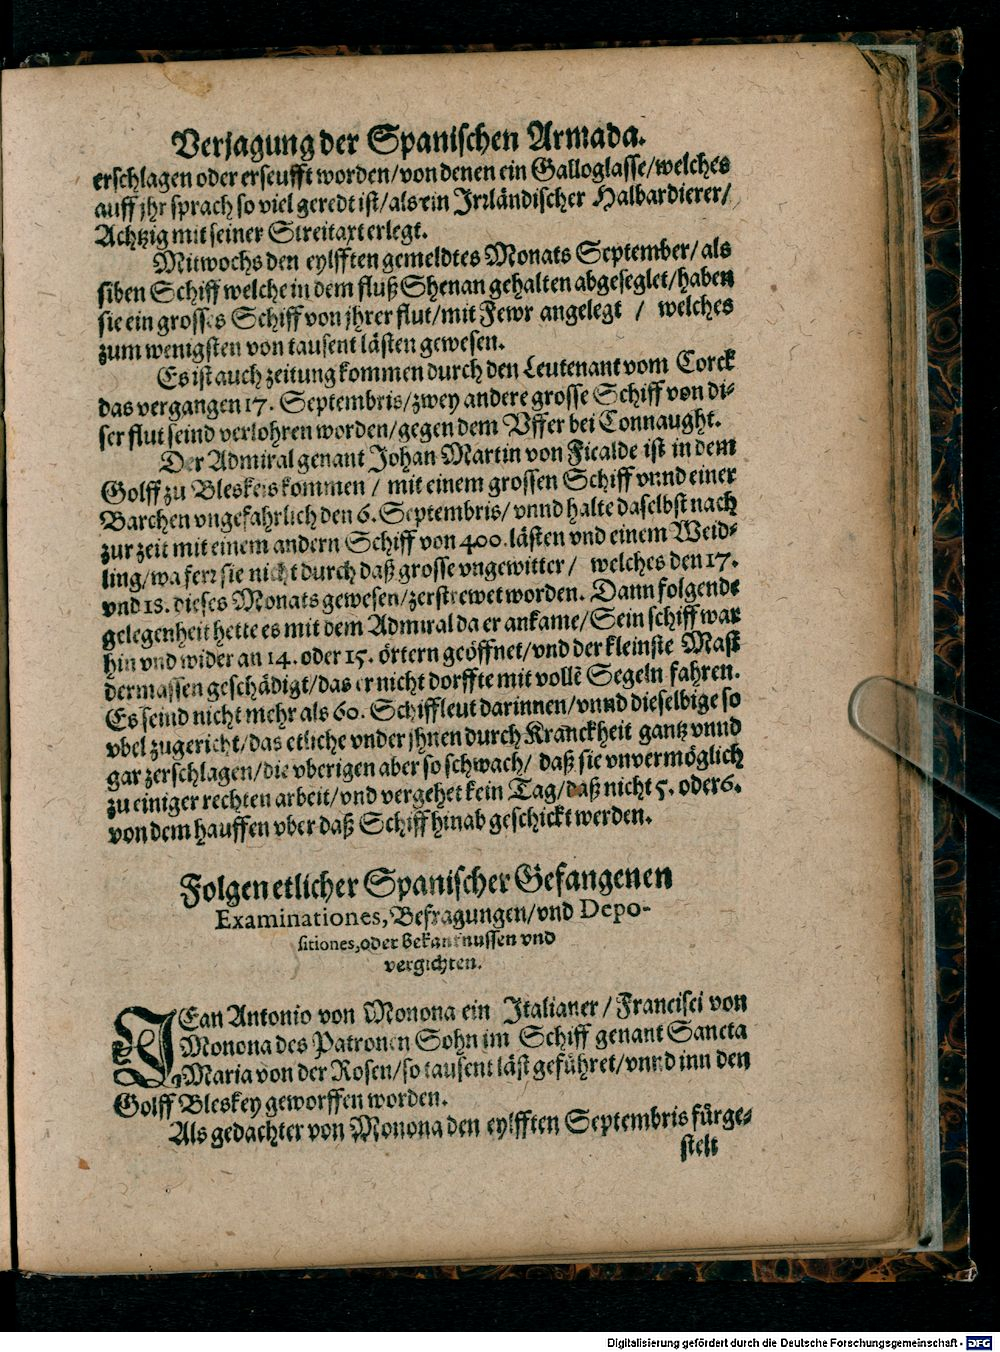 Verjagung der Spanischen Armada.
erschlagen oder erseufft worden/von denen ein Galloglasse/welches
auff jhr sprach so viel geredt ist/als ein Irrländischer Halbardierer/
Achtzig mit seiner Streitaxt erlegt.
Mitwochs den eylfften gemeldtes Monats September/als
siben Schiff welche in dem fluß Shenan gehalten abgeseglet/haben
sie ein grosses Schiff von jhrer flut/mit Fewr angelegt / welches
zum wenigsten von tausent lästen gewesen.
Es ist auch zeitung kommen durch den Leutenant vom Corck
das vergangen 17. Septembris/zwey andere grosse Schiff von di-
ser flut seind verlohren worden/gegen dem Vffer bei Connaught.
Der Admiral genant Johan Martin von Ficalde ist in dem
Golff zu Bleskeis kommen / mit einem grossen Schiff vnnd einer
Barchen vngefahrlich den 6. Septembris/vnnd halte daselbst nach
zur zeit mit einem andern Schiff von 400. lästen vnd einem Weid-
ling/wa ferr sie nicht durch daß grosse vngewitter/ welches den 17.
vnd 18. dieses Monats gewesen/zerstrewet worden. Dann folgende
gelegenheit hette es mit dem Admiral da er ankame/Sein schiff war
hin vnd wider an 14. oder 15. örtern geöffnet/vnd der kleinste Mast
dermassen geschädigt/das er nicht dorffte mit vollē Segeln fahren.
Es seind nicht mehr als 60. Schiffleut darinnen/vnnd dieselbige so
vbel zugericht/das etliche vnder jhnen durch Kranckheit gantz vnnd
gar zerschlagen/die vberigen aber so schwach/ daß sie vnvermöglich
zu einiger rechten arbeit/vnd vergehet kein Tag/daß nicht 5. oder 6.
von dem hauffen vber daß Schiff hinab geschickt werden.
Folgen etlicher Spanischer Gefangenen
Examinationes, Befragungen/vnd Depo-
sitiones, oder Bekantnussen vnd
vergichten.
JEan Antonio von Monona ein Italianer / Francisci von
Monona des Patronen Sohn im Schiff genant Sancta
Maria von der Rosen/so tausent läst geführet/vnnd inn den
Golff Bleskey geworffen worden.
Als gedachter von Monona den eylfften Septembris fürge-
stelt
Digitalisierung gefördert durch die Deutsche Forschungsgemeinschaft - DFG